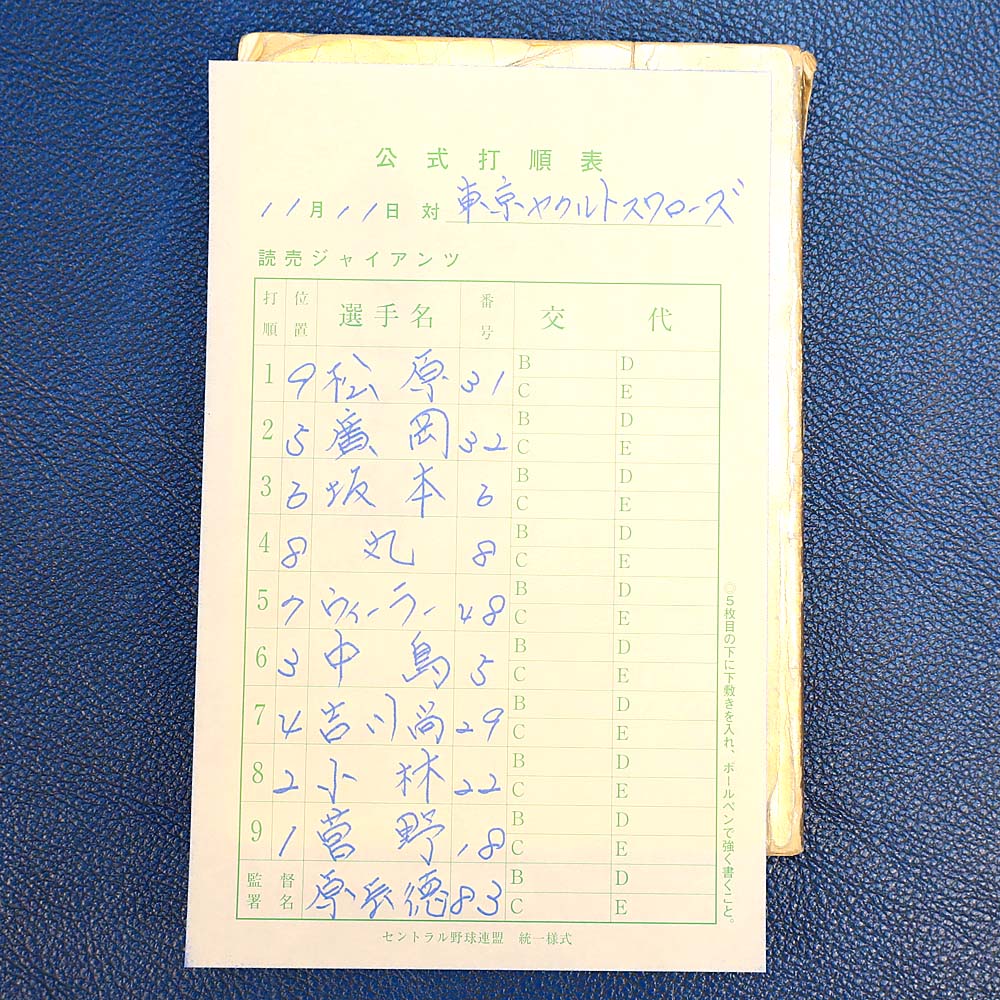 公式打順表
11月11日 対 東京ヤクルトスワローズ
読売ジャイアンツ
打順 位置 選手名 番号 交代
1 9 松原 31 B D
C E
2 5 廣岡 32 B D
C E
3 6 坂本 6 B D
C E
4 8 丸 8 B D
C E
5 7 ウィーラー 48 B D
C E
6 3 中島 5 B D
C E
7 4 吉川尚 29 B D
C E
8 2 小林 22 B D
C E
9 1 菅野 18 B D
C E
監督署名 原辰徳 83 B D
C E
セントラル野球連盟 統一様式
◎5枚目の下に下敷きを入れ、ボールペンで強く書くこと。